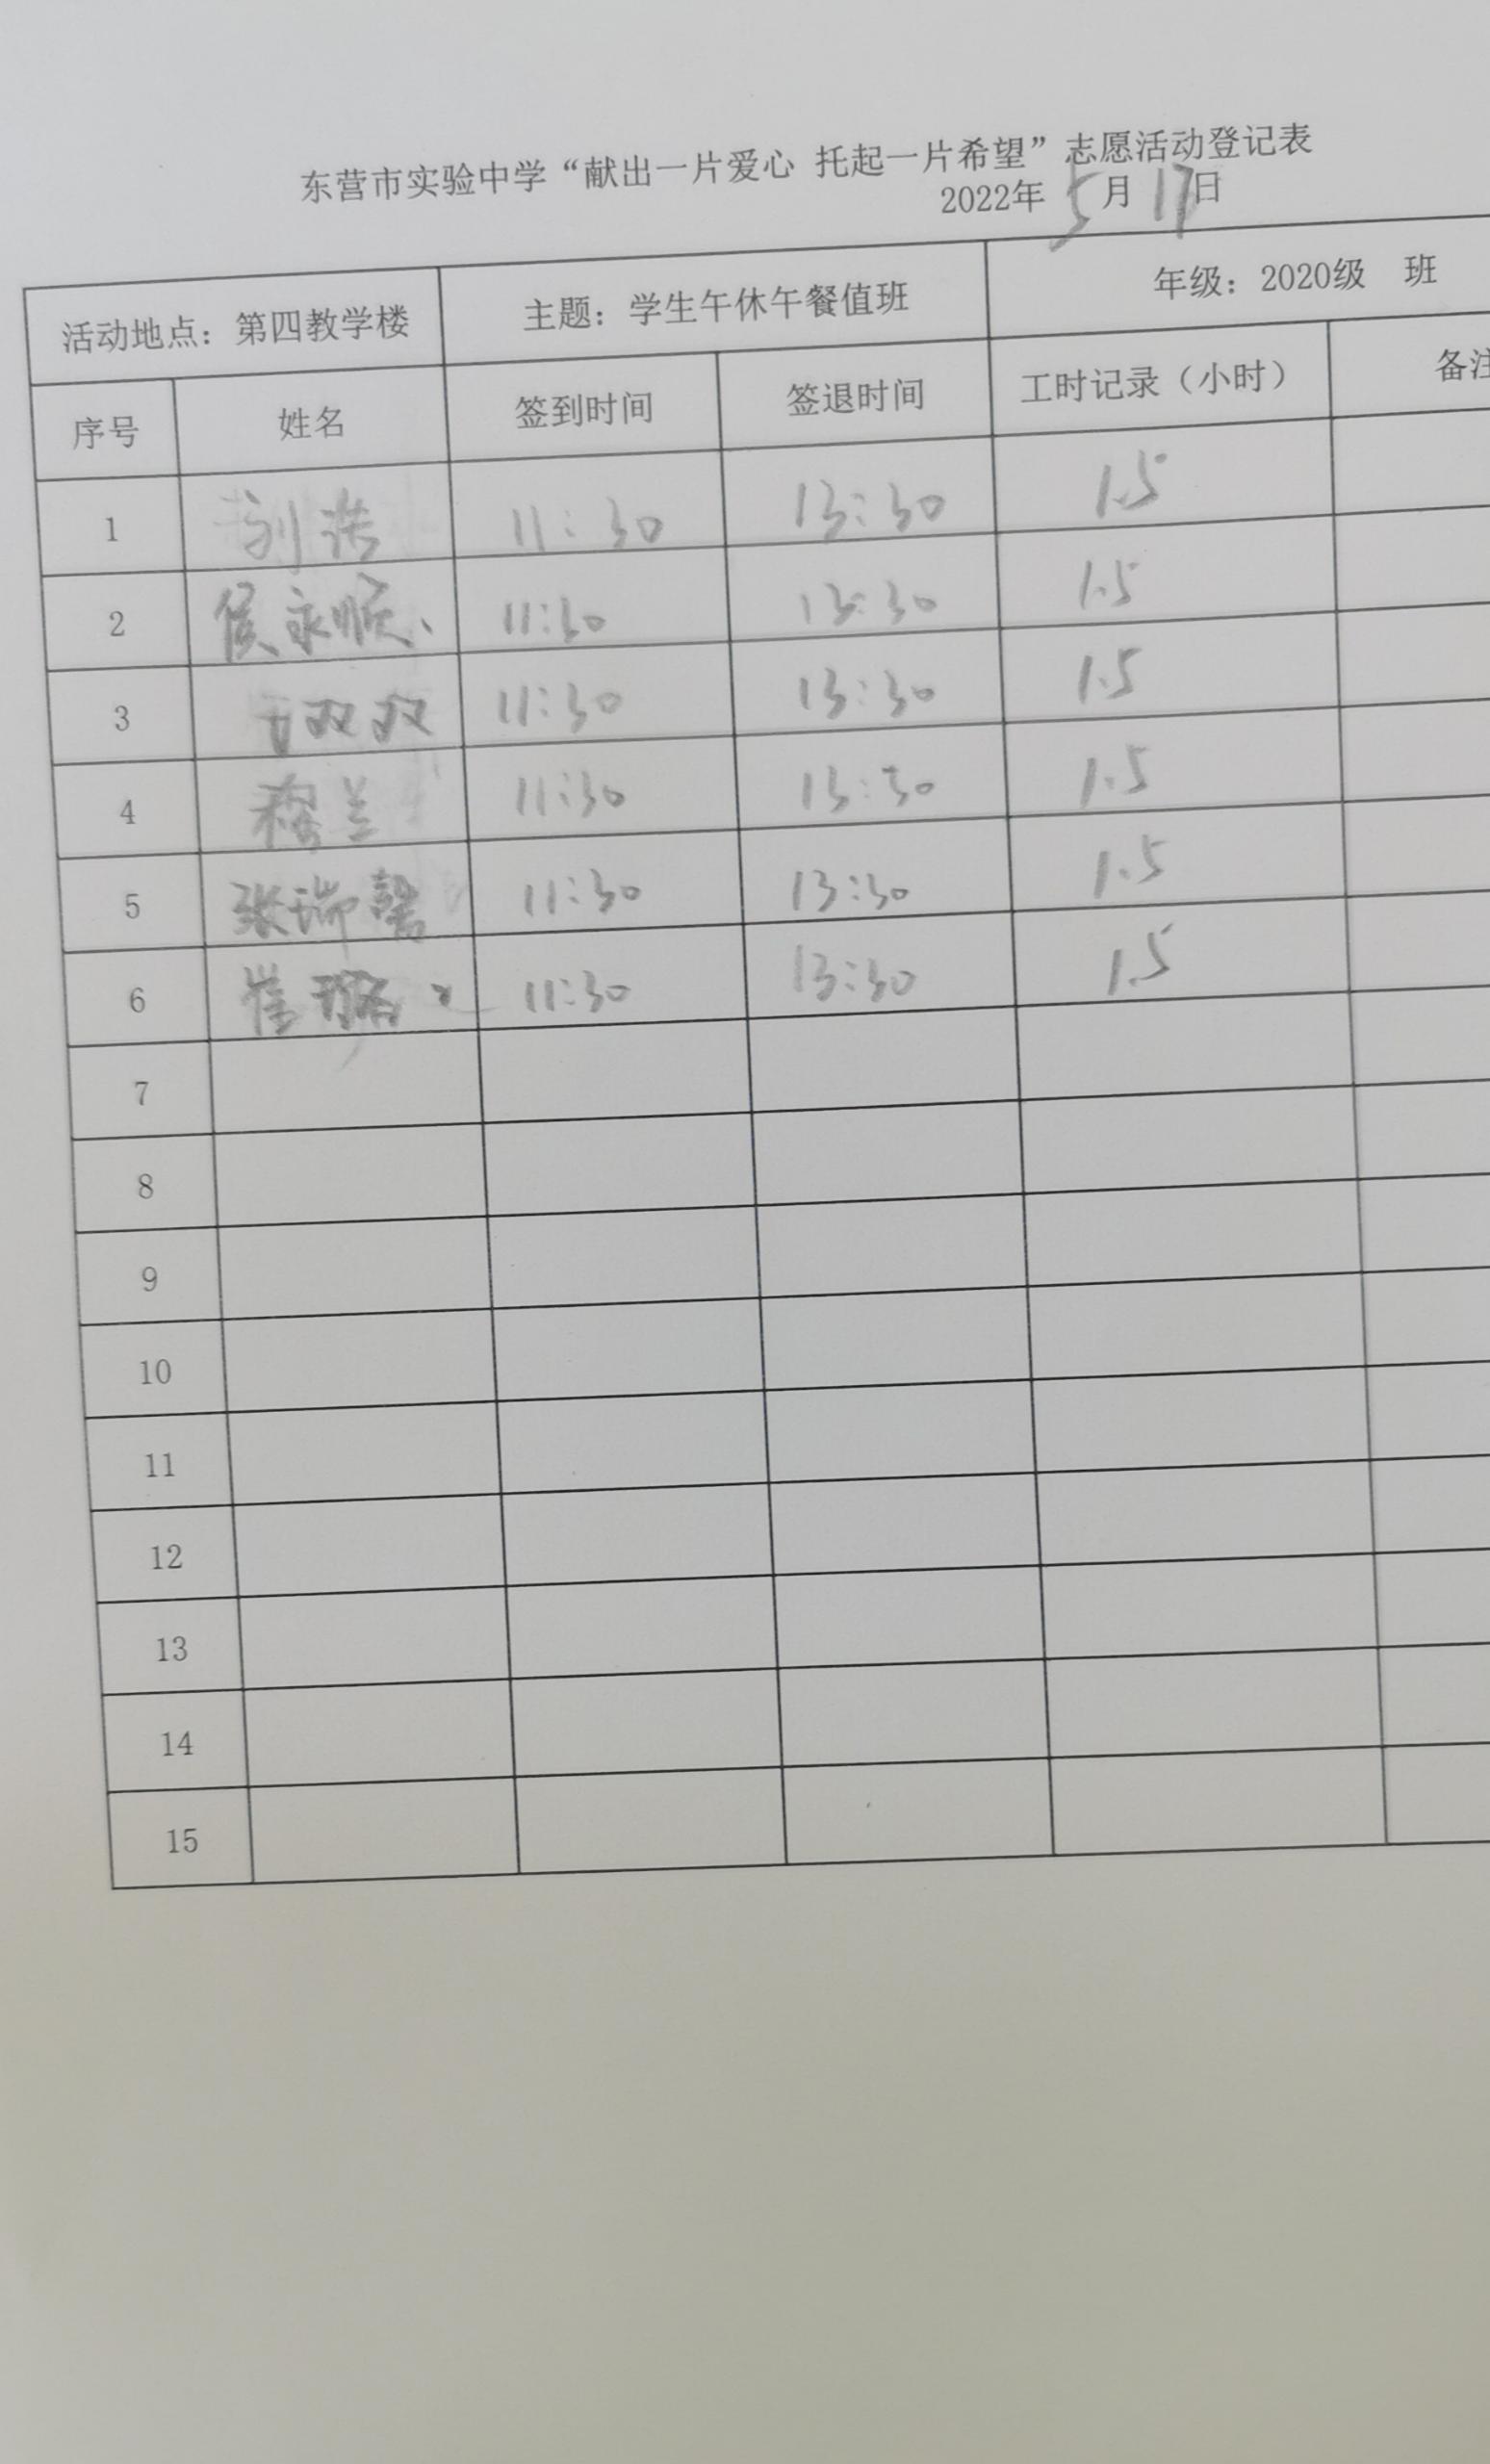 东营市实验中学“献出一片爱心 托起一片希望”志愿活动登记表
2022年 5 月 17 日
活动地点：第四教学楼 主题：学生午休午餐值班 年级：2020级 班
序号 姓名 签到时间 签退时间 工时记录（小时） 备注
1 刘浩 11:30 13:30 1.5
2 侯永顺 11:30 13:30 1.5
3 11:30 13:30 1.5
4 穆兰 11:30 13:30 1.5
5 张瑞馨 11:30 13:30 1.5
6 崔璐 11:30 13:30 1.5
7
8
9
10
11
12
13
14
15